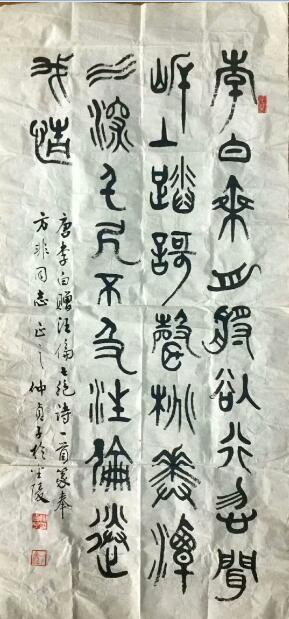 李白乘舟將欲行忽聞
岸上踏謌聲桃花潭
水深千尺不及汪倫送
我情
唐李白贈汪倫七絕詩一首篆奉
方非同志正之仲貞子於金陵